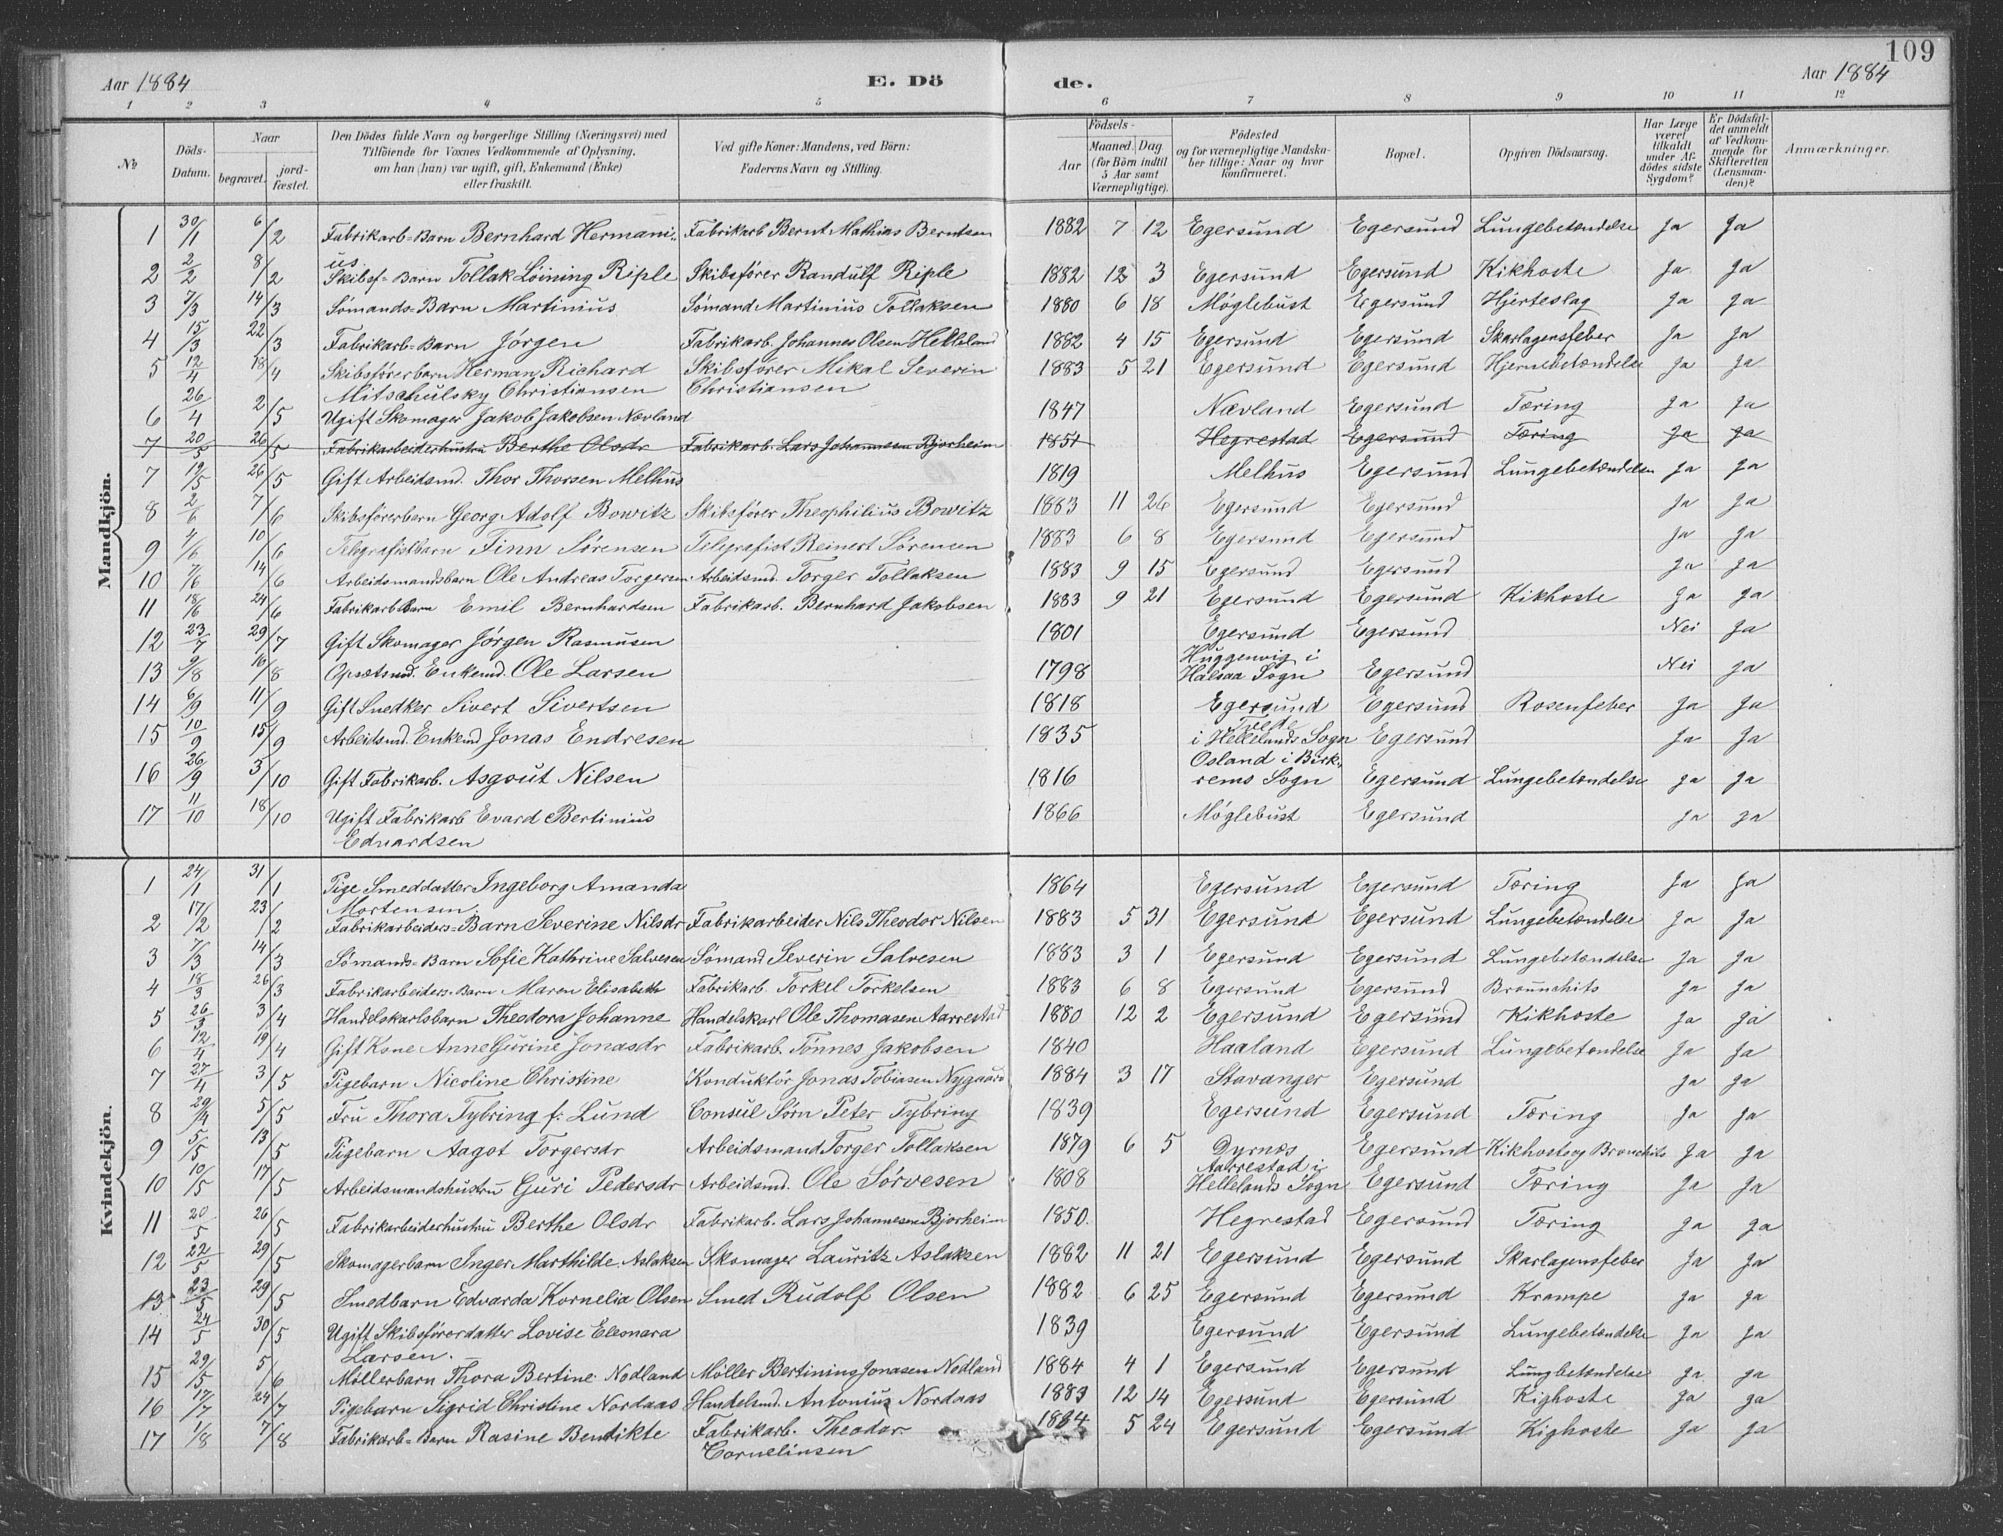 109
Aar 1884 E. Dö de. Aar 1884
1 2 3 4 5 6 7 8 9 10 11 12
№ Döds-Datum. Naar begravet. jord-fæstet. Den Dödes fulde Navn og borgerlige Stilling (Næringsvei) med Tilföiende for Voxnes Vedkommende af Oplysning, om han (hun) var ugift, gift, Enkemand (Enke) eller fraskilt. Ved gifte Koner: Mandens, ved Börn: Faderens Navn og Stilling. Födsels- Aar Maaned. Dag. (for Börn indtil 5 Aar samt Værnepligtige). Födested og for værnepligtige Mandskaber tillige: Naar og hvor konfirmeret. Bopæl. Opgiven Dödsaarsag. Har Læge været tilkaldt under Afdödes sidste Sygdom? Er Dödsfaldet anmeldt af Vedkommende for Skifteretten (Lensmanden)? Anmærkninger.
Mandkjön.
1 30/1 6/2 Fabrikarb=Barn Bernhard Hermani= Fabrikarb Bernt Mathias Berntsen 1882 7 12 Egersund Egersund Lungebetændelse Ja Ja
us
2 2/2 8/2 Skibsf=Barn Tollak Löining Riple Skibsförer Randulf Riple 1882 12 3 Egersund Egersund Kikhoste Ja Ja
3 7/3 14/3 Sömands=Barn Martinius Sömand Martinius Tollaksen 1880 6 18 Möglebust Egersund Hjerteslag Ja Ja
4 15/3 22/3 Fabrikarb=Barn Jörgen Fabrikarb. Johannes Olsen Helleland 1882 4 15 Egersund Egersund Skarlagensfeber Ja Ja
5 12/4 18/4 Skibsförerbarn Herman Richard Skibsförer Mikal Severin 1883 5 21 Egersund Egersund Hjernebetændelse Ja Ja
Mitschulsky Christiansen Christiansen
6 26/4 2/5 Ugift Skomager Jakob Jakobsen Nævland 1847 Nævland Egersund Tæring Ja Ja
7 20/5 26/5 Fabrikarbeiderhustru Berthe Olsdr Fabrikarb. Lars Johannesen Bjorheim 1851 Hegrestad Egersund Tæring Ja Ja
7 19/5 26/5 Gift Arbeidsmd. Thor Thorsen Melhus 1819 Melhus Egersund Lungebetændelsen Ja Ja
8 2/6 7/6 Skibsförerbarn Georg Adolf Bowitz Skibsförer Theophilius Bowitz 1883 11 26 Egersund Egersund Ja Ja
9 4/6 10/6 Telegrafistbarn Finn Sörensen Telegrafist Reinert Sörensen 1883 6 8 Egersund Egersund Ja Ja
10 7/6 14/6 Arbeidsmandsbarn Ole Andreas Torgersen Arbeidsmd. Torger Tollaksen 1883 9 15 Egersund Egersund Ja Ja
11 18/6 24/6 Fabrikarb Barn Emil Bernhardsen Fabrikarb. Bernhard Jakobsen 1883 9 21 Egersund Egersund Kikhoste Ja Ja
12 23/7 29/7 Gift Skomager Jörgen Rasmusen 1801 Egersund Egersund Nei Ja
Huggenvig i
13 9/8 16/8 Opsætsmd. Enkemd. Ole Larsen 1798 Halsaa Sogn Egersund Nei Ja
14 6/9 11/9 Gift Snedker Sivert Sivertsen 1818 Egersund Egersund Rosenfeber Ja Ja
15 10/9 15/9 Arbeidsmd. Enkemd Jonas Endresen 1835 i Hellelands Sogn Egersund Ja Ja
Osland i Birk=
16 26/9 3/10 Gift Fabrikarb. Asgout Nilsen 1816 rems Sogn Egersund Lungebetændelse Ja Ja
17 11/10 18/10 Ugift Fabrikarb Evard Bertinius 1866 Möglebust Egersund Ja Ja
Edvardsen
Kvindekjön.
1 24/1 31/1 Pige Smeddatter Ingeborg Amanda 1864 Egersund Egersund Tæring Ja Ja
Mortensen.
2 17/2 23/2 Fabrikarbeiders=Barn Severine Nilsdr Fabrikarbeider Nils Theodor Nilsen 1883 5 31 Egersund Egersund Lungebetændelse Ja Ja
3 7/3 14/3 Sömands=Barn Sofie Kathrine Salvesen Sömand Severin Salvesen 1883 3 1 Egersund Egersund Lungebetændelse Ja Ja
4 18/3 26/3 Fabrikarbeiders=Barn Maren Elisabeth Fabrikarb. Torkel Torkelsen 1883 6 8 Egersund Egersund Brounchits Ja Ja
5 26/3 3/4 Handelskarlsbarn Theodora Johanne Handelskarl Ole Thomasen Aarrestad 1880 12 2 Egersund Egersund Kikhoste Ja Ja
6 12/4 19/4 Gift Kone Anne Gurine Jonasdr Fabrikarb. Tönnes Jakobsen 1840 Haaland Egersund Lungebetændelse Ja Ja
7 27/4 3/5 Pigebarn Nicoline Christine Konduktör Jonas Tobiasen Nygaard 1884 3 17 Stavanger Egersund Ja Ja
8 29/4 5/5 Fru Thora Tybring f: Lund Consul Sörn Peter Tybring 1839 Egersund Egersund Tæring Ja Ja
9 5/5 13/5 Pigebarn Aagot Torgersdr Arbeidsmand Torger Tollaksen 1879 6 5 Dyrnæs Egersund Kikhoste og Bronchits Ja Ja
Aarrestad i
10 10/5 17/5 Arbeidsmandshustru Guri Pedersdr Arbeidsmd. Ole Sörvesen 1808 Hellelands Sogn Egersund Tæring Ja Ja
11 20/5 26/5 Fabrikarbeiderhustru Berthe Olsdr Fabrikarb. Lars Johannesen Bjorheim 1850. Hegrestad Egersund Tæring Ja Ja
12 22/5 29/5 Skomagerbarn Inger Marthilde Aslaksen Skomager Lauritz Aslaksen 1882 11 21 Egersund Egersund Skarlagensfeber Ja Ja
13 23/5 29/5 Smedbarn Edvarda Kornelia Olsen Smed Rudolf Olsen 1882 6 25 Egersund Egersund Krampe Ja Ja
14 24/5 30/5 Ugift Skibsförerdatter Lovise Eleonara 1839 Egersund Egersund Lungebetændelse Ja Ja
Larsen.
15 29/5 5/6 Möllerbarn Thora Bertine Nodland Möller Bertining Jonasen Nodland 1884 4 1 Egersund Egersund Lungbetændelse Ja Ja
16 17/7 24/7 Pigebarn Sigrid Christine Nordaas Handelsmd. Antonius Nordaas 1883 12 14 Egersund Egersund Kighoste Ja Ja
17 1/8 7/8 Fabrikarb=Barn Rasine Bendikte Fabrikarb. Theodor 1884 5 24 Egersund Egersund Kighoste Ja Ja
Cornelinsen